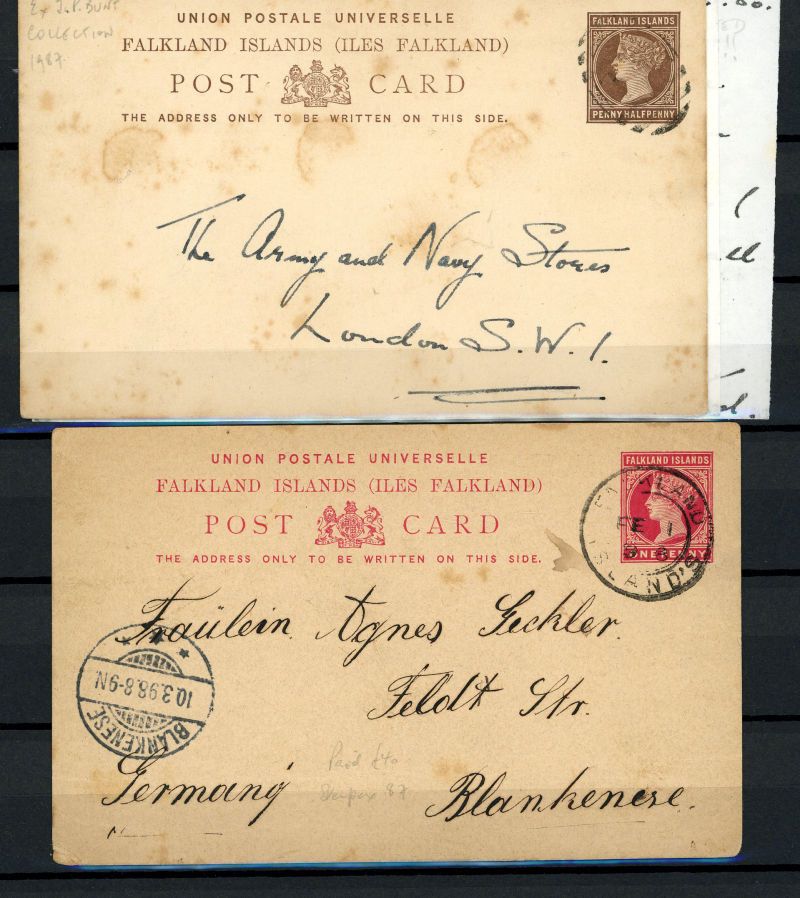 Ex J.P. BUNT
COLLECTION
1987.
UNION POSTALE UNIVERSELLE
FALKLAND ISLANDS (ILES FALKLAND)
POST CARD
THE ADDRESS ONLY TO BE WRITTEN ON THIS SIDE.
FALKLAND ISLANDS
PENNY HALFPENNY
The Army and Navy Stores
London S.W.1.
UNION POSTALE UNIVERSELLE
FALKLAND ISLANDS (ILES FALKLAND)
POST CARD
THE ADDRESS ONLY TO BE WRITTEN ON THIS SIDE.
FALKLAND ISLANDS
ONE PENNY
FALKLAND ISLAND'S
FE 1
Fraülein Agnes Geckler.
Feldt Str.
Germany Blankenese.
10.3.98.8-9N
BLANKENESE
Paid £40